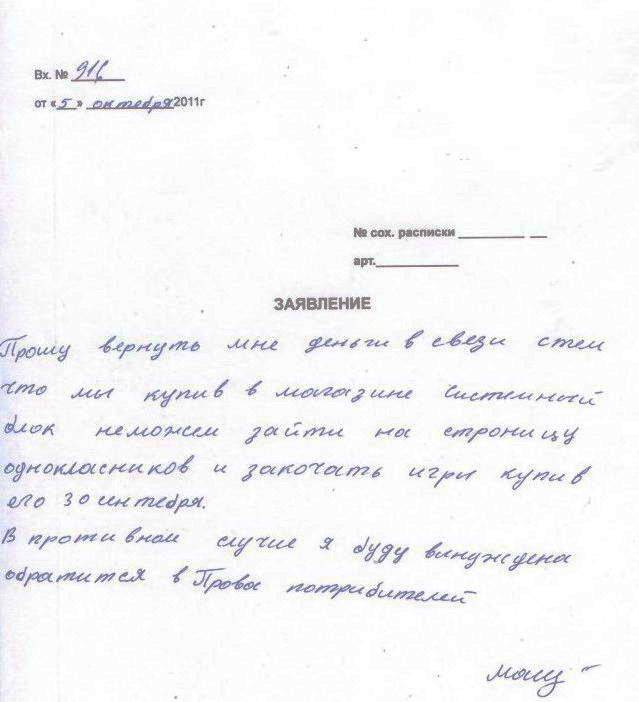 Вх. № 916
от «5» октебря 2011г
№ сох. расписки
арт.
ЗАЯВЛЕНИЕ
Прошу вернуть мне деньги в свези стем
что мы купив в магазине Системный
блок неможем зайти на строницу
однокласников и закочать игры купив
его 30 сентебря.
В противном случие я буду вынуждена
обратится в Прова потрибителей